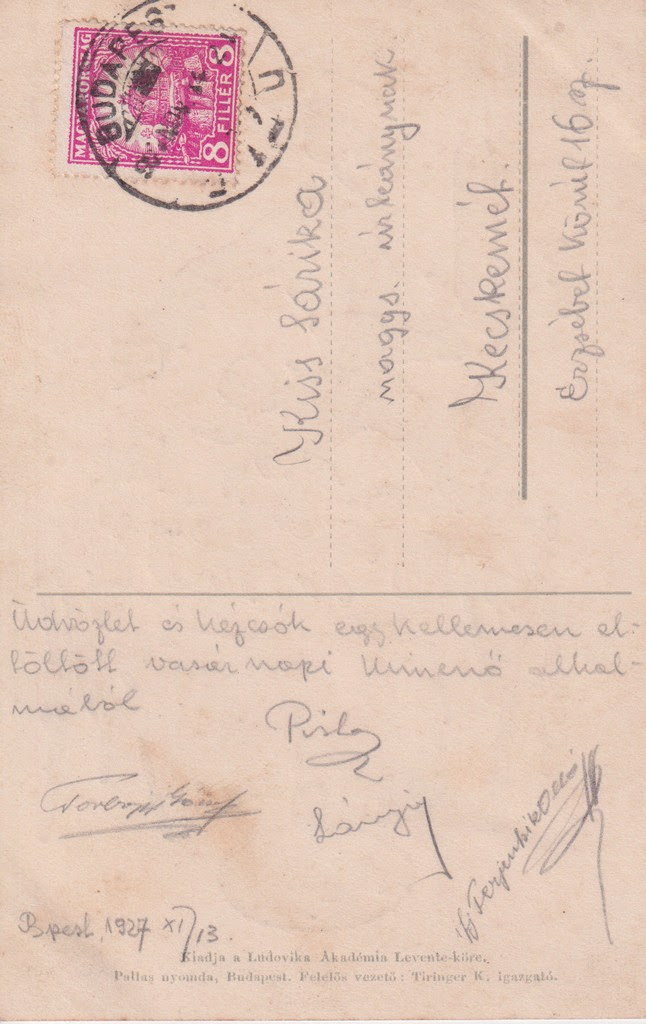 MAGYARORSZÁG
8 FILLÉR 8
BUDAPEST
Kiss Sárika
nagys. úrleánynak.
Kecskemét.
Erzsébet körút 16 sz.
Üdvözlet és kézcsók egy kellemesen el-
töltött vasárnapi kimenő alkal-
mából
Pista
Bpest, 1927 XI/13.
Kiadja a Ludovika Akadémia Levente-köre.
Pallas nyomda, Budapest. Felelős vezető: Tiringer K. igazgató.